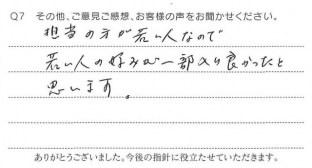 Q7 その他、ご意見ご感想、お客様の声をお聞かせください。
担当の方が若い人なので
若い人の好みが一部入り良かったと
思います。
ありがとうございました。今後の指針に役立たせていただきます。